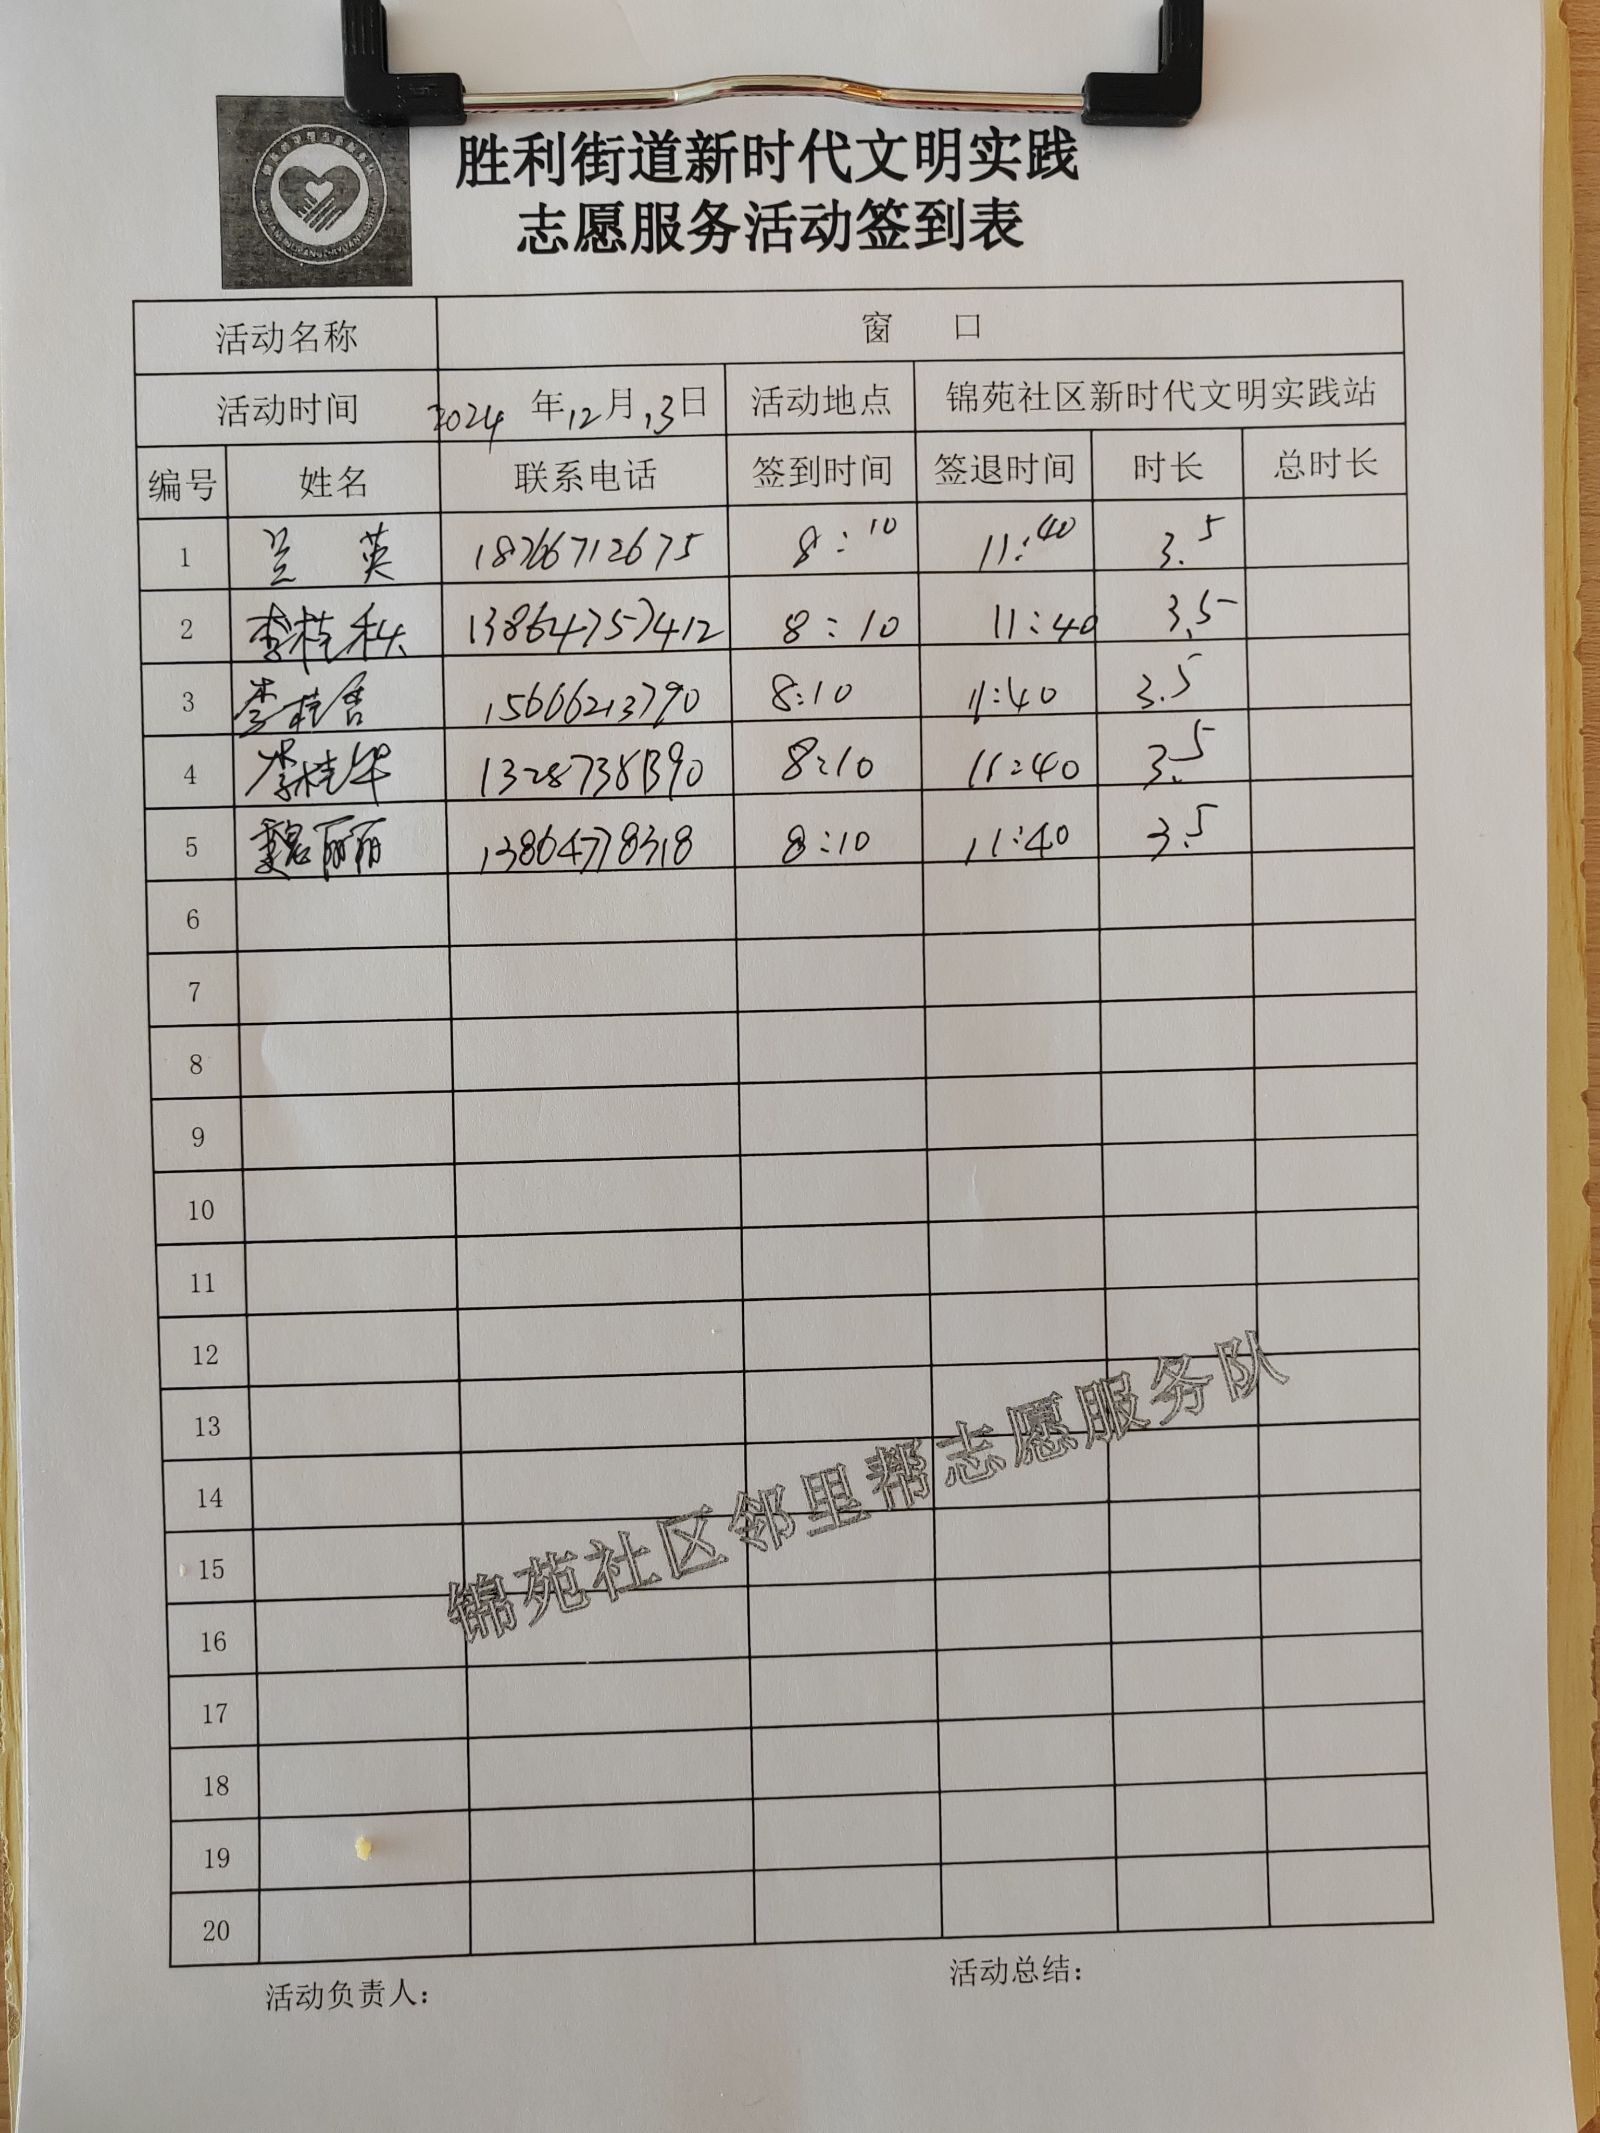 胜利街道新时代文明实践
志愿服务活动签到表
活动名称 窗 口
活动时间 2024 年 12 月 13 日 活动地点 锦苑社区新时代文明实践站
编号 姓名 联系电话 签到时间 签退时间 时长 总时长
1 兰英 18266712675 8:10 11:40 3.5
2 李桂秋 13864757412 8:10 11:40 3.5
3 李桂 15666213790 8:10 11:40 3.5
4 李桂华 8:10 11:40 3.5
5 魏丽丽 13864778318 8:10 11:40 3.5
6
7
8
9
10
11
12
13
14
15
16
17
18
19
20
锦苑社区邻里帮志愿服务队
活动负责人： 活动总结：